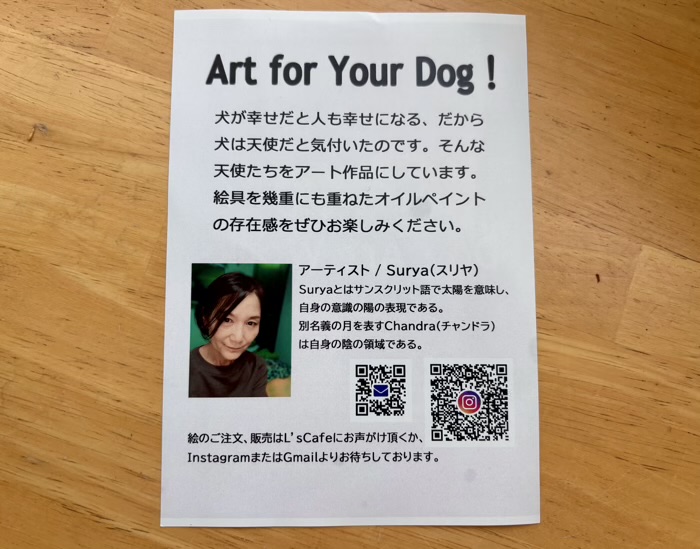 Art for Your Dog !
犬が幸せだと人も幸せになる、だから
犬は天使だと気付いたのです。そんな
天使たちをアート作品にしています。
絵具を幾重にも重ねたオイルペイント
の存在感をぜひお楽しみください。
アーティスト / Surya(スリヤ)
Suryaとはサンスクリット語で太陽を意味し、
自身の意識の陽の表現である。
別名義の月を表すChandra(チャンドラ)
は自身の陰の領域である。
絵のご注文、販売はL'sCafeにお声がけ頂くか、
InstagramまたはGmailよりお待ちしております。